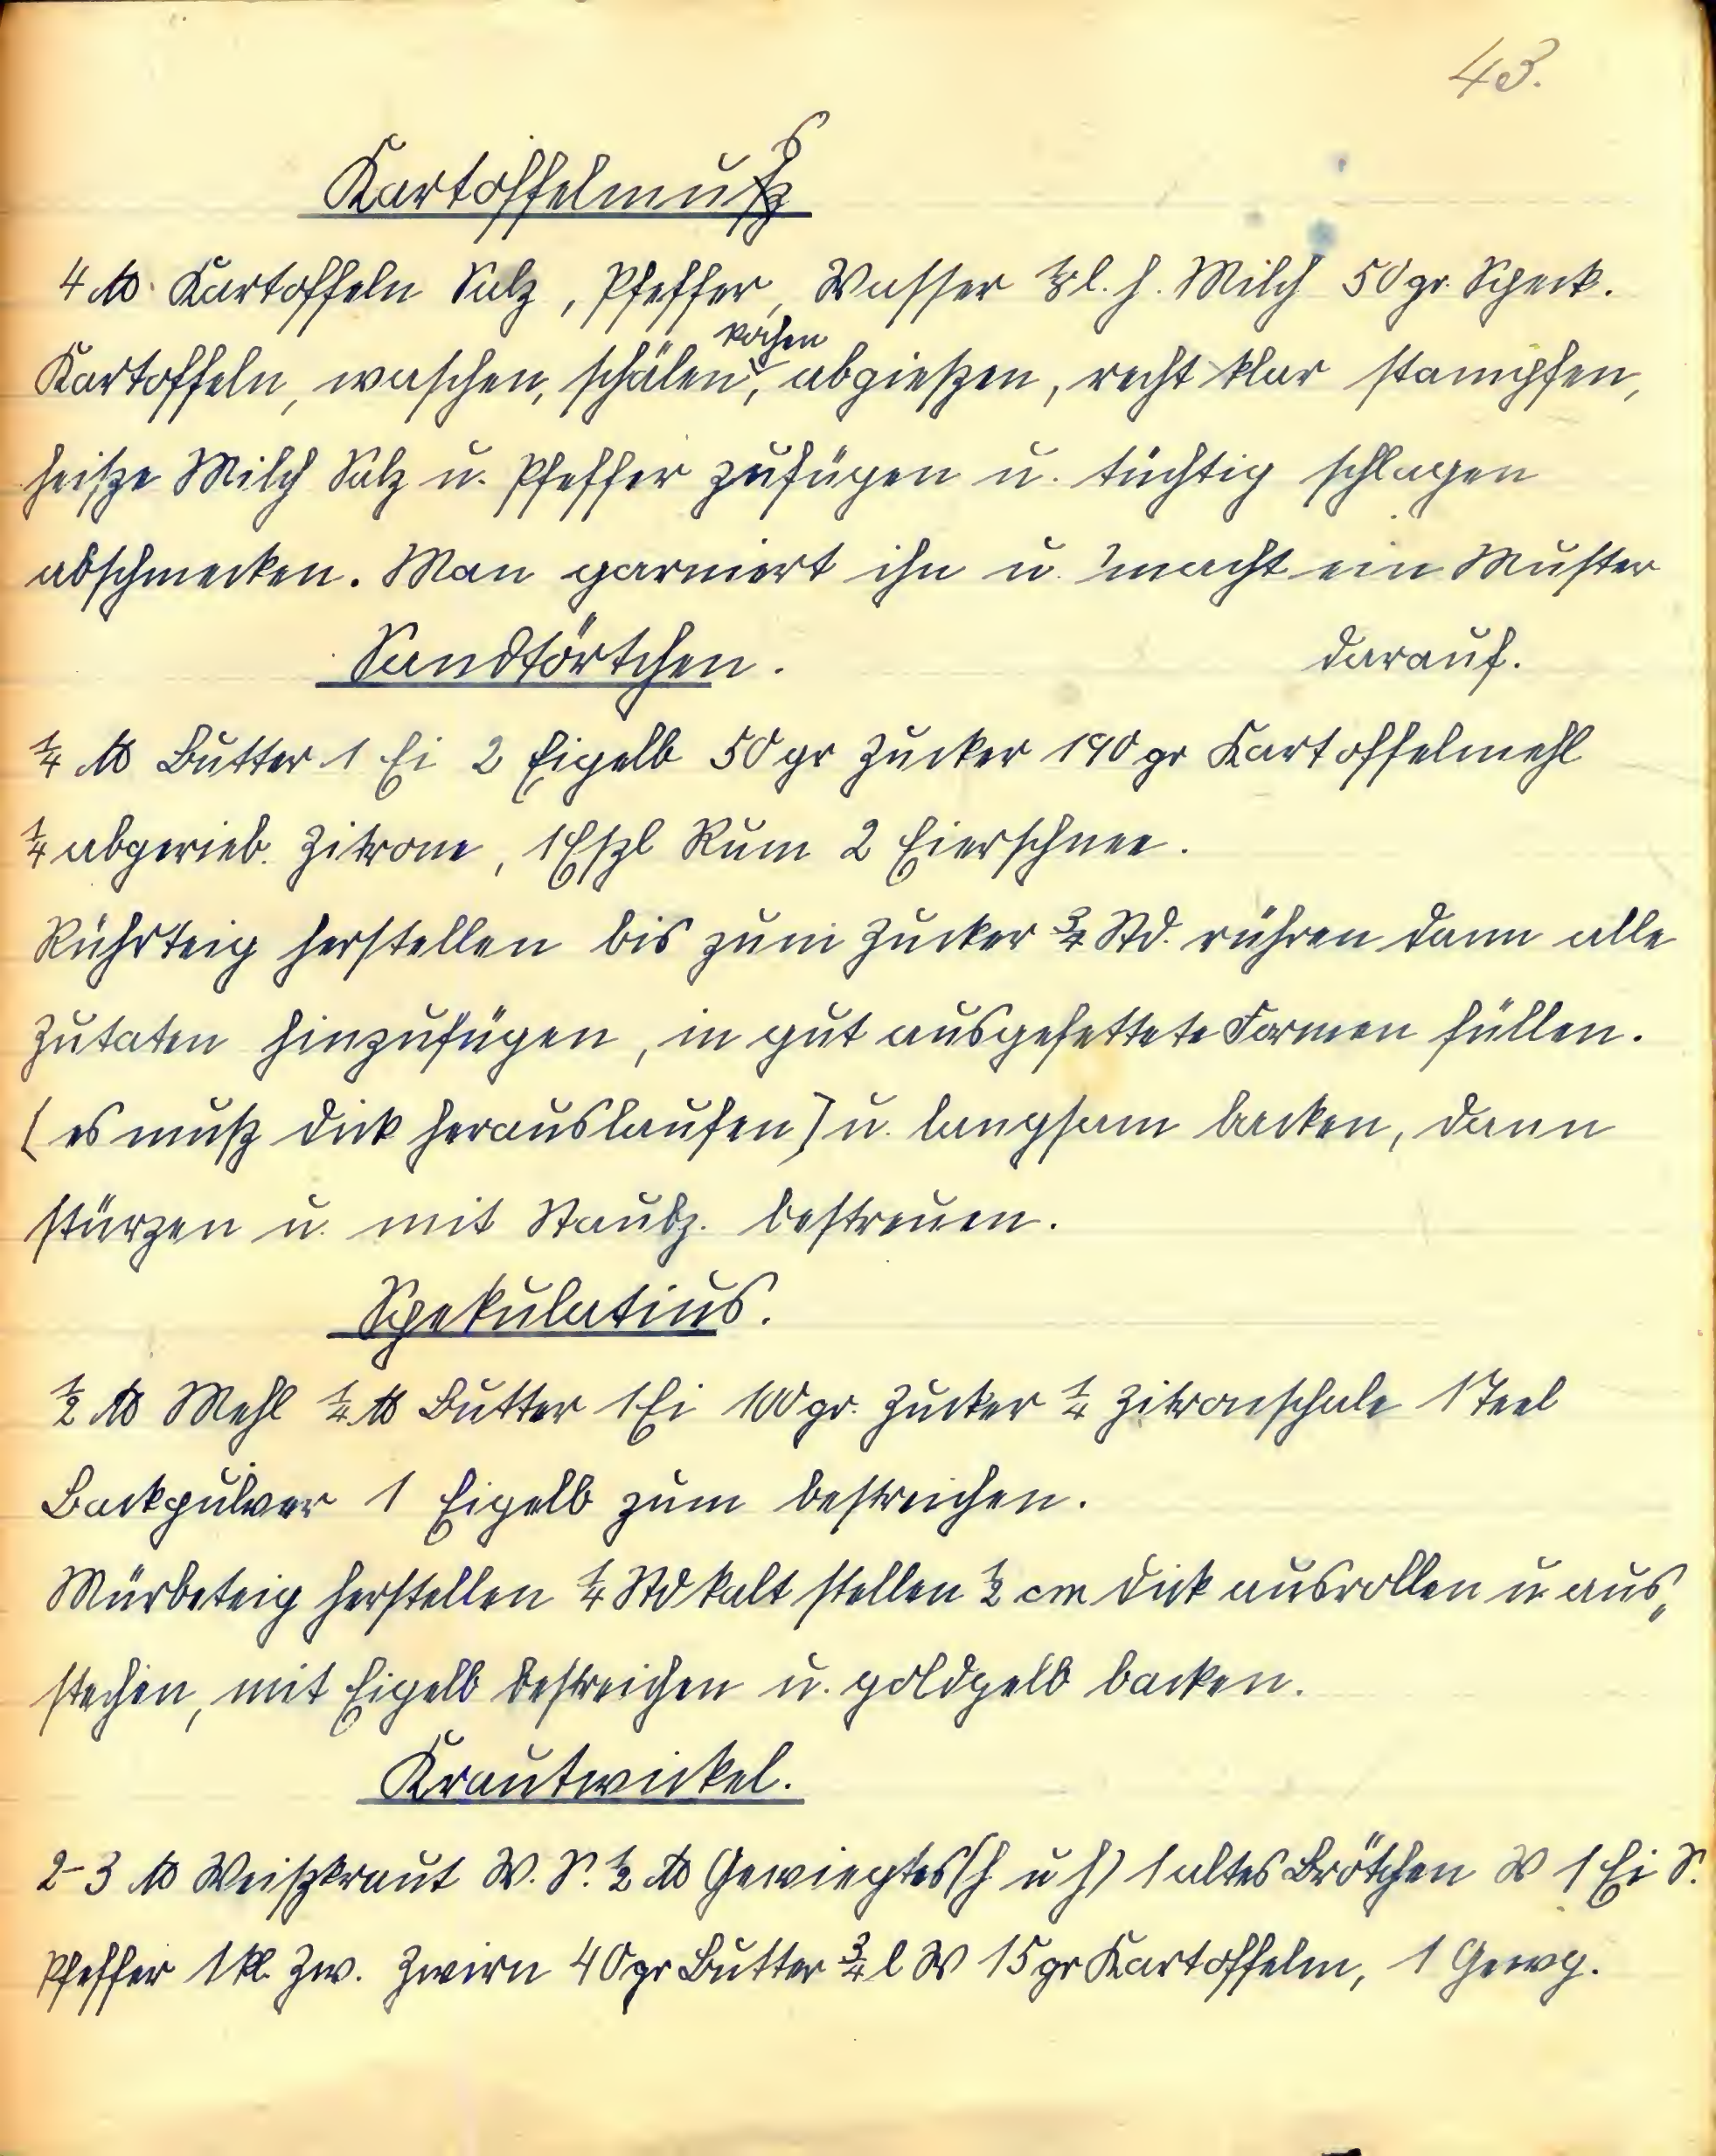 43.
Kartoffelmus
4 ℔ Kartoffeln Salz, Pfeffer, Wasser ⅛ l. h. Milch 50 gr. Speck.
kochen
Kartoffeln, waschen, schälen, abgießen, recht klar stampfen,
heiße Milch Salz u. Pfeffer zufügen u. tüchtig schlagen
abschmecken. Man garniert ihn u. macht ein Muster
Sandtörtchen. darauf.
¼ ℔ Butter 1 Ei 2 Eigelb 50 gr Zucker 190 gr Kartoffelmehl
¼ abgerieb. Zitrone, 1 Eßl Rum 2 Eierschnee.
Rührteig herstellen bis zum Zucker ¾ Std. rühren dann alle
Zutaten hinzufügen, in gut ausgefettete Formen füllen.
(es muß dick herauslaufen) u. langsam backen, dann
stürzen u. mit Staubz. bestreuen.
Spekulatius.
½ ℔ Mehl ¼ ℔ Butter 1 Ei 100 gr. Zucker ¼ Zitronschale 1 Teel
Backpulver 1 Eigelb zum bestreichen.
Mürbeteig herstellen ¼ Std kalt stellen ½ cm dick ausrollen u aus„
stechen, mit Eigelb bestreichen u. goldgelb backen.
Krautwickel.
2-3 ℔ Weißkraut W. S. ½ ℔ Gewiegtes (h u h) 1 altes Brötchen W 1 Ei S.
Pfeffer 1 kl. Zw. Zwirn 40 gr Butter ¾ l W 15 gr Kartoffelm, 1 Gewg.